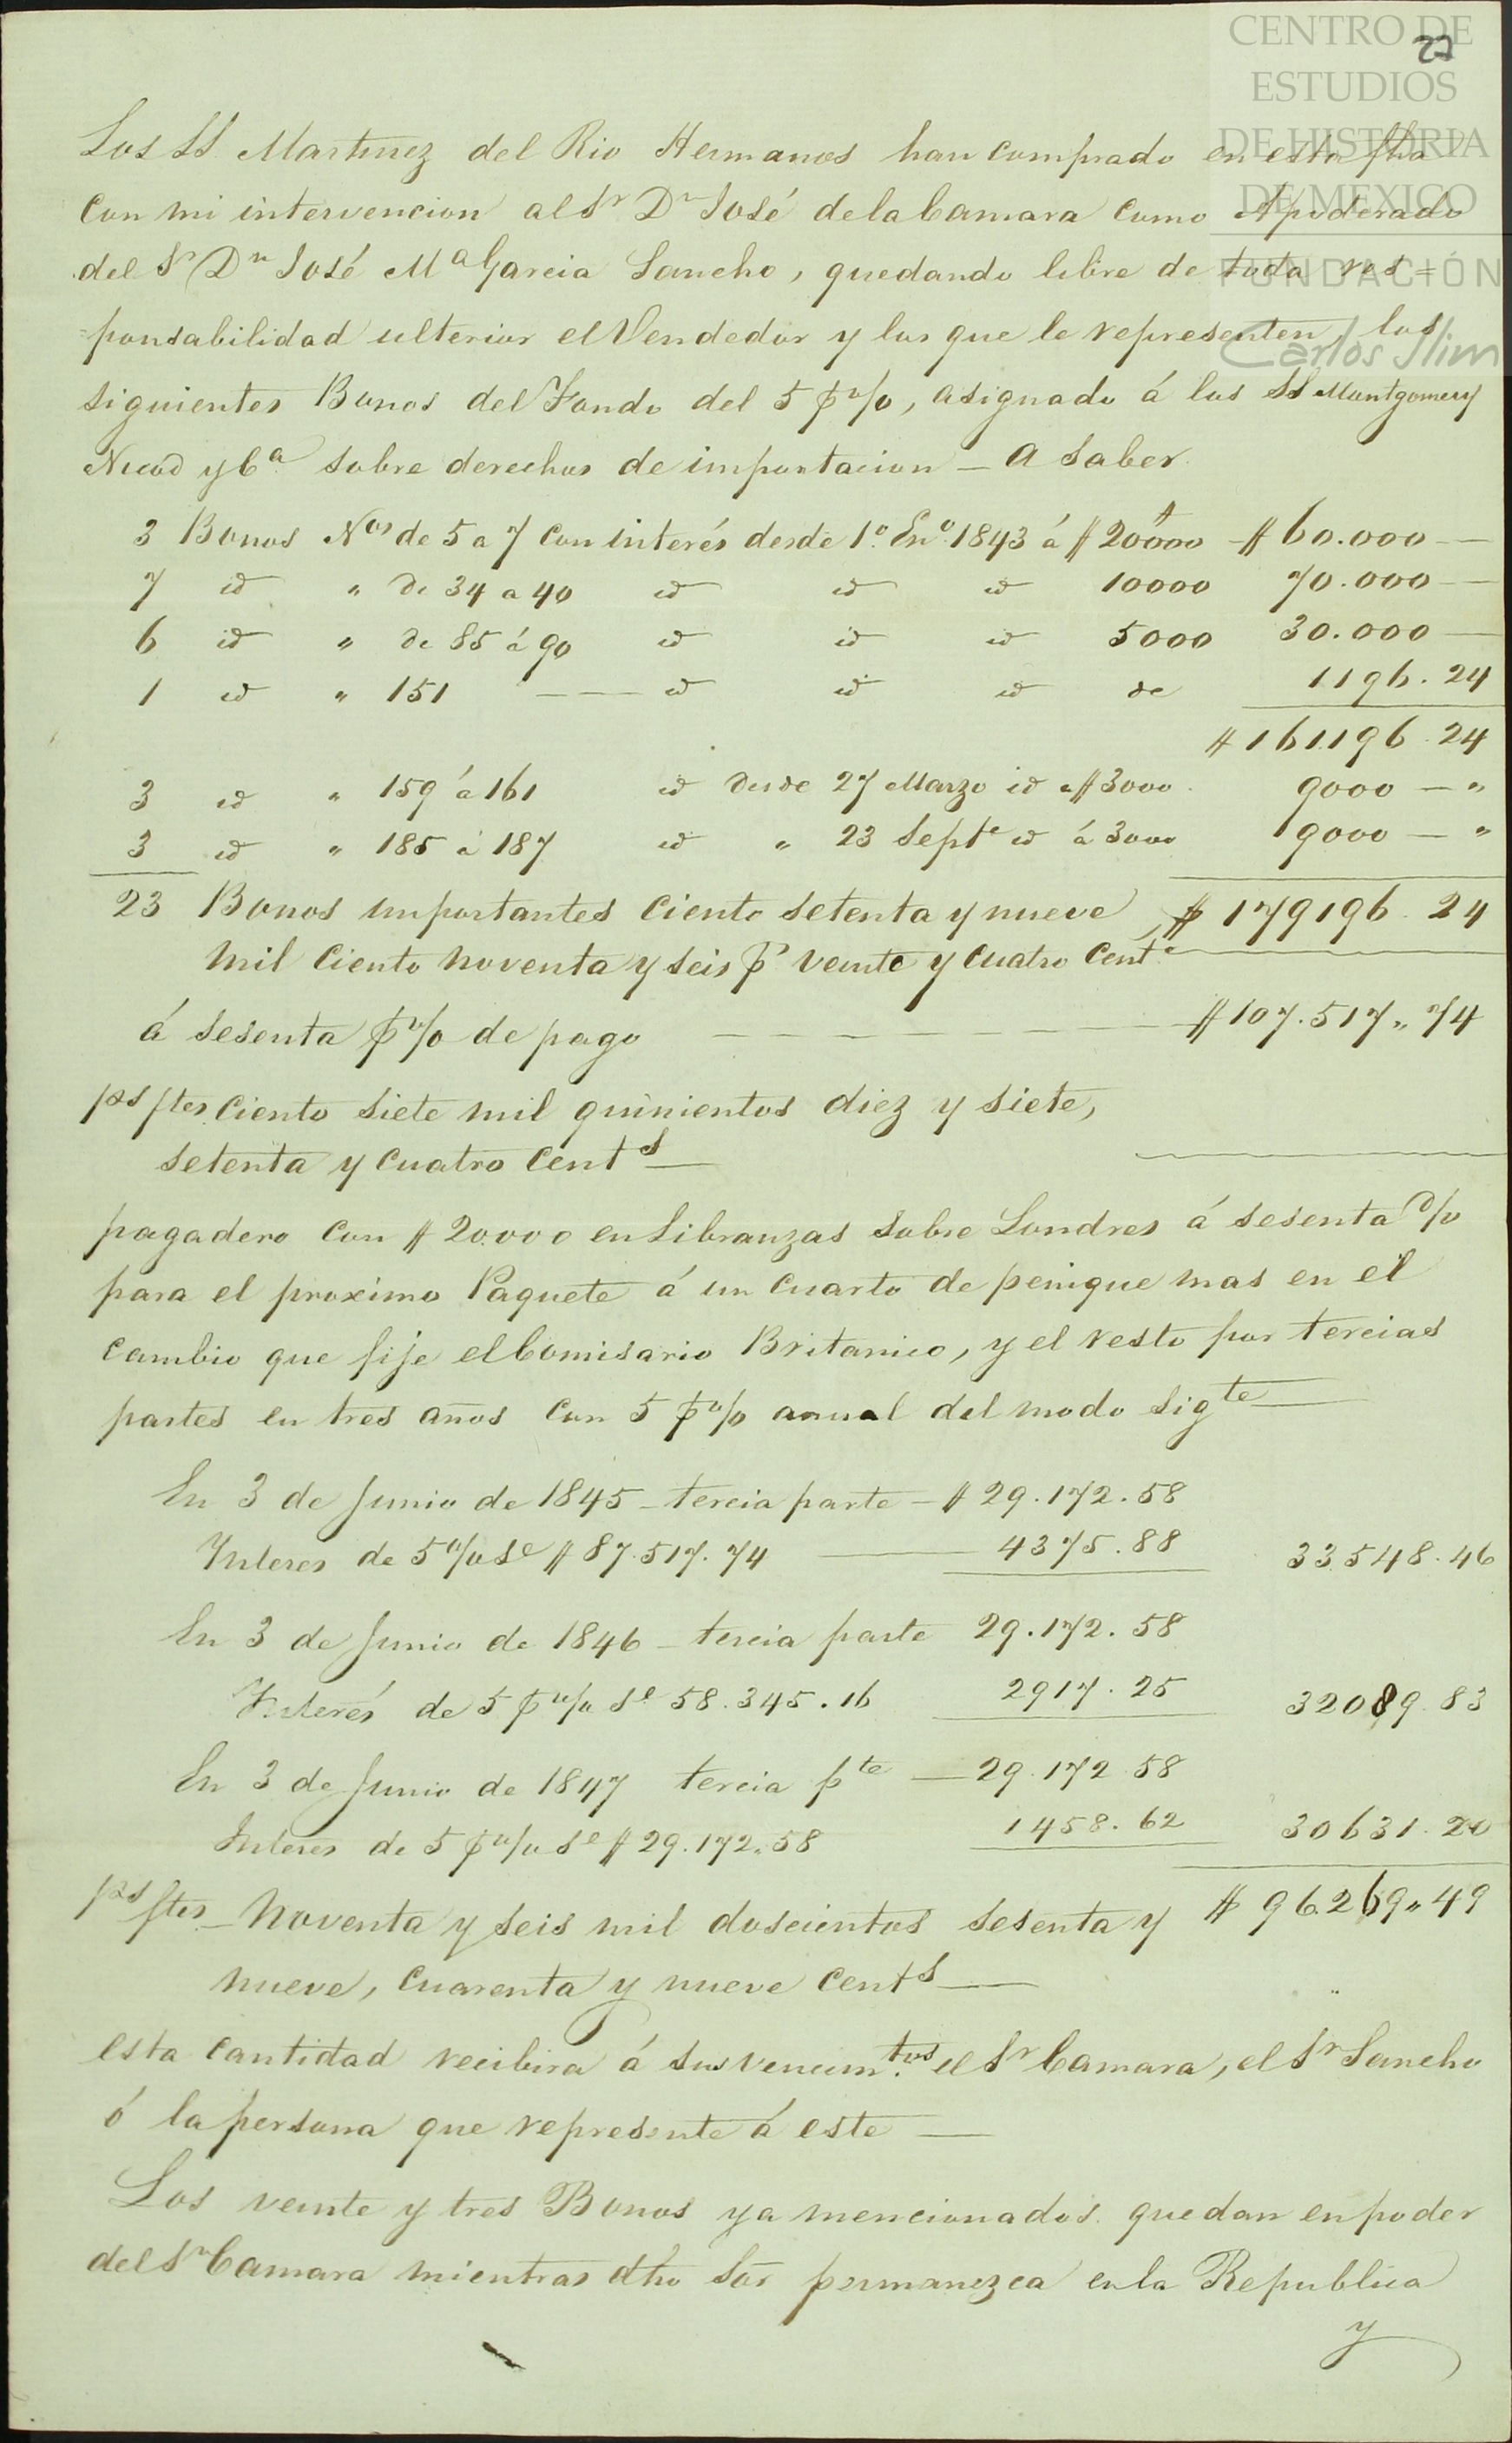 CENTRO DE
ESTUDIOS
DE HISTORIA
DE MEXICO
FUNDACIÓN
Carlos Slim
27
Los SS Martinez del Rio Hermanos han comprado en esta fha
con mi intervencion al Sr Dn José de la Camara como Apoderado
del Sr Dn José Ma Garcia Sancho, quedando libre de toda res=
=ponsabilidad ulterior el Vendedor y los que le representen, los
siguientes Bonos del Fondo del 5 p%, asignado á los SS Montgomery
Nicod y Ca sobre derechos de importacion — A saber.
3 Bonos Nos de 5 a 7 con interés desde 1o. Eno. 1843 á $ 20000 — $ 60.000 —
7 id " de 34 a 40 id id id 10000 70.000 —
6 id " de 85 á 90 id id id 5000 30.000 —
1 id " 151 — id id id de 1196.24
$ 161.196.24
3 id " 159 á 161 id desde 27 Marzo id a $ 3000. 9000 — "
3 id " 185 á 187 id " 23 Septe id á 3000 9000 — "
23 Bonos importantes ciento setenta y nueve $ 179196.24
mil ciento noventa y seis ps veinte y cuatro cents
á sesenta p% de pago — $ 107.517„74
ps ftes ciento siete mil quinientos diez y siete,
setenta y cuatro cents —
pagadero con $ 20.000 en Libranzas sobre Londres á sesenta d/v
para el proximo Paquete á un cuarto de penique mas en el
cambio que fije el Comisario Britanico, y el resto por tercias
partes en tres años con 5 p% anual del modo sigte —
En 3 de Junio de 1845 — tercia parte — $ 29.172.58
Interes de 5% se $ 87.517.74 — 4375.88 33.548.46
En 3 de Junio de 1846 — tercia parte 29.172.58
Interés de 5 p% se 58.345.16 2917.25 32089.83
En 3 de Junio de 1847 tercia pte — 29.172.58
Interes de 5 p% se $ 29.172.58 1458.62 30631.20
ps ftes — Noventa y seis mil doscientos sesenta y $ 96.269„49
nueve, cuarenta y nueve cents —
esta cantidad recibira á sus vencimtos. el Sr Camara, el Sr Sancho
ó la persona que represente á este —
Los veinte y tres Bonos ya mencionados quedan en poder
del Sr Camara mientras dho Sor permanezca en la Republica
y